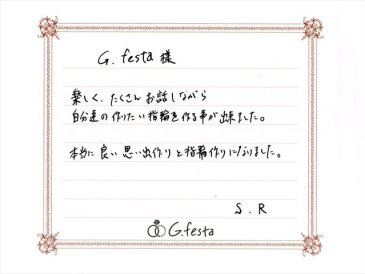 G. festa 様
楽しく、たくさん お話しながら
自分達の 作りたい 指輪を 作る事が出来ました。
本当に 良い 思い出作り と 指輪作り になりました。
S . R
G.festa